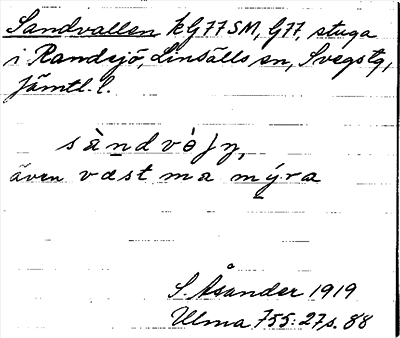 Sandvallen kG77SM, G77, stuga
i Randsjö, Linsälls sn, Svegs tg,
Jämtl. l.
sàndvòḷṇ,
även væst ma mýra
S. Åsander 1919
Ulma 755:27 s. 88